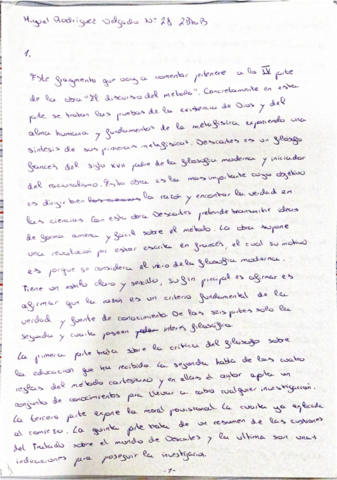 Miguel Rodríguez Delgado Nº 28 2ºBachB
1.
Este fragmento que voy a comentar pertenece a la IV parte
de la obra "El discurso del método". Concretamente en esta
parte se tratan las pruebas de la existencia de Dios y del
alma humana y fundamentos de la metafísica exponiendo una
síntesis de sus primeras metafísicas. Descartes es un filósofo
francés del siglo XVII padre de la filosofía moderna y iniciador
del racionalismo. Esta obra es la mas importante cuyo objetivo
es dirigir bien la razón y encontrar la verdad en
las ciencias. Con esta obra Descartes pretende transmitir ideas
de forma amena y fácil sobre el método. La obra supone
una revolución por estar escrita en francés, el cual su motivo
es porque se considera el inicio de la filosofía moderna.
Tiene un estilo claro y sencillo, su fin principal es afirmar es
afirmar que la razón es un criterio fundamental de la
verdad y fuente de conocimiento. De las seis partes solo la
segunda y cuarta poseen interés filosófico.
La primera parte trata sobre la crítica del filósofo sobre
la educación que ha recibido. La segunda habla de las cuatro
reglas del método cartesiano y en ellas el autor aporta un
conjunto de conocimientos para llevar a cabo cualquier investigación.
La tercera parte expone la moral provisional. La cuarta ya explicada
al comienzo. La quinta parte trata de un resumen de las cuestiones
del Tratado sobre el mundo de Descartes y la ultima son unas
indicaciones para proseguir la investigación.
-1-